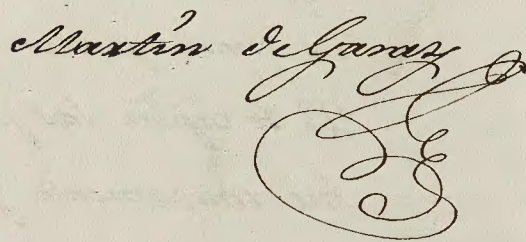 Martin de Garay